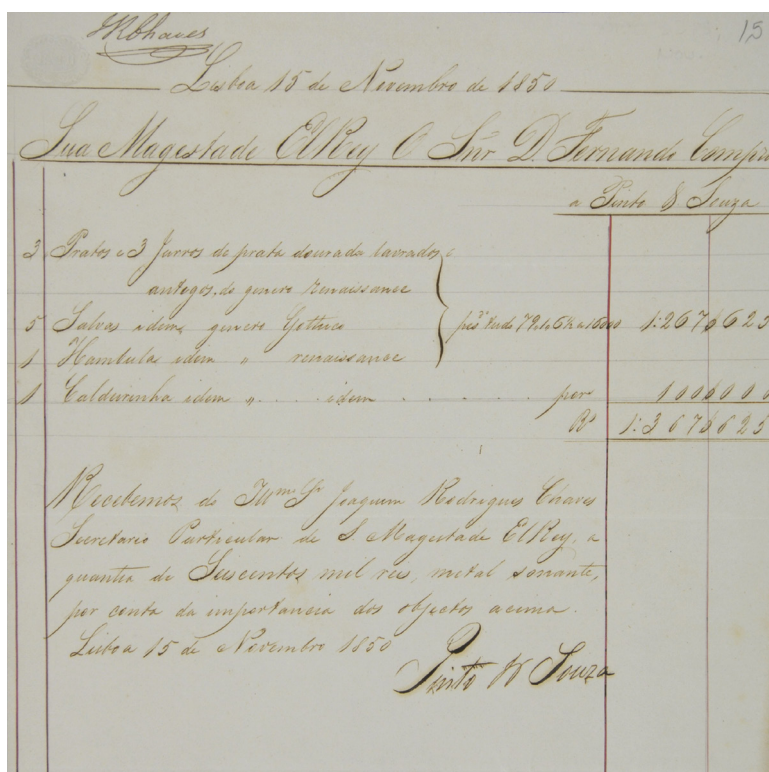 JRChaves
15
Lisboa 15 de Novembro de 1850
Sua Magestade ElRey O Snr D. Fernando Compra
a Pinto & Souza
3 Pratos e 3 Jarros de prata dourada lavrados e
antegos, de genero renaissance
5 Salvas idem, genero Gothico 1:267$625
1 Hambula idem " renaissance
1 Caldeirinha idem " idem por 100$000
Rs 1:367$625
Recebemos do Illmo Sr Joaquim Rodrigues Chaves
Secretario Particular de S. Magestade ElRey, a
quantia de Suscentos mil reis, metal sonante,
por conta da importancia dos objectos acima.
Lisboa 15 de Novembro 1850
Pinto & Souza